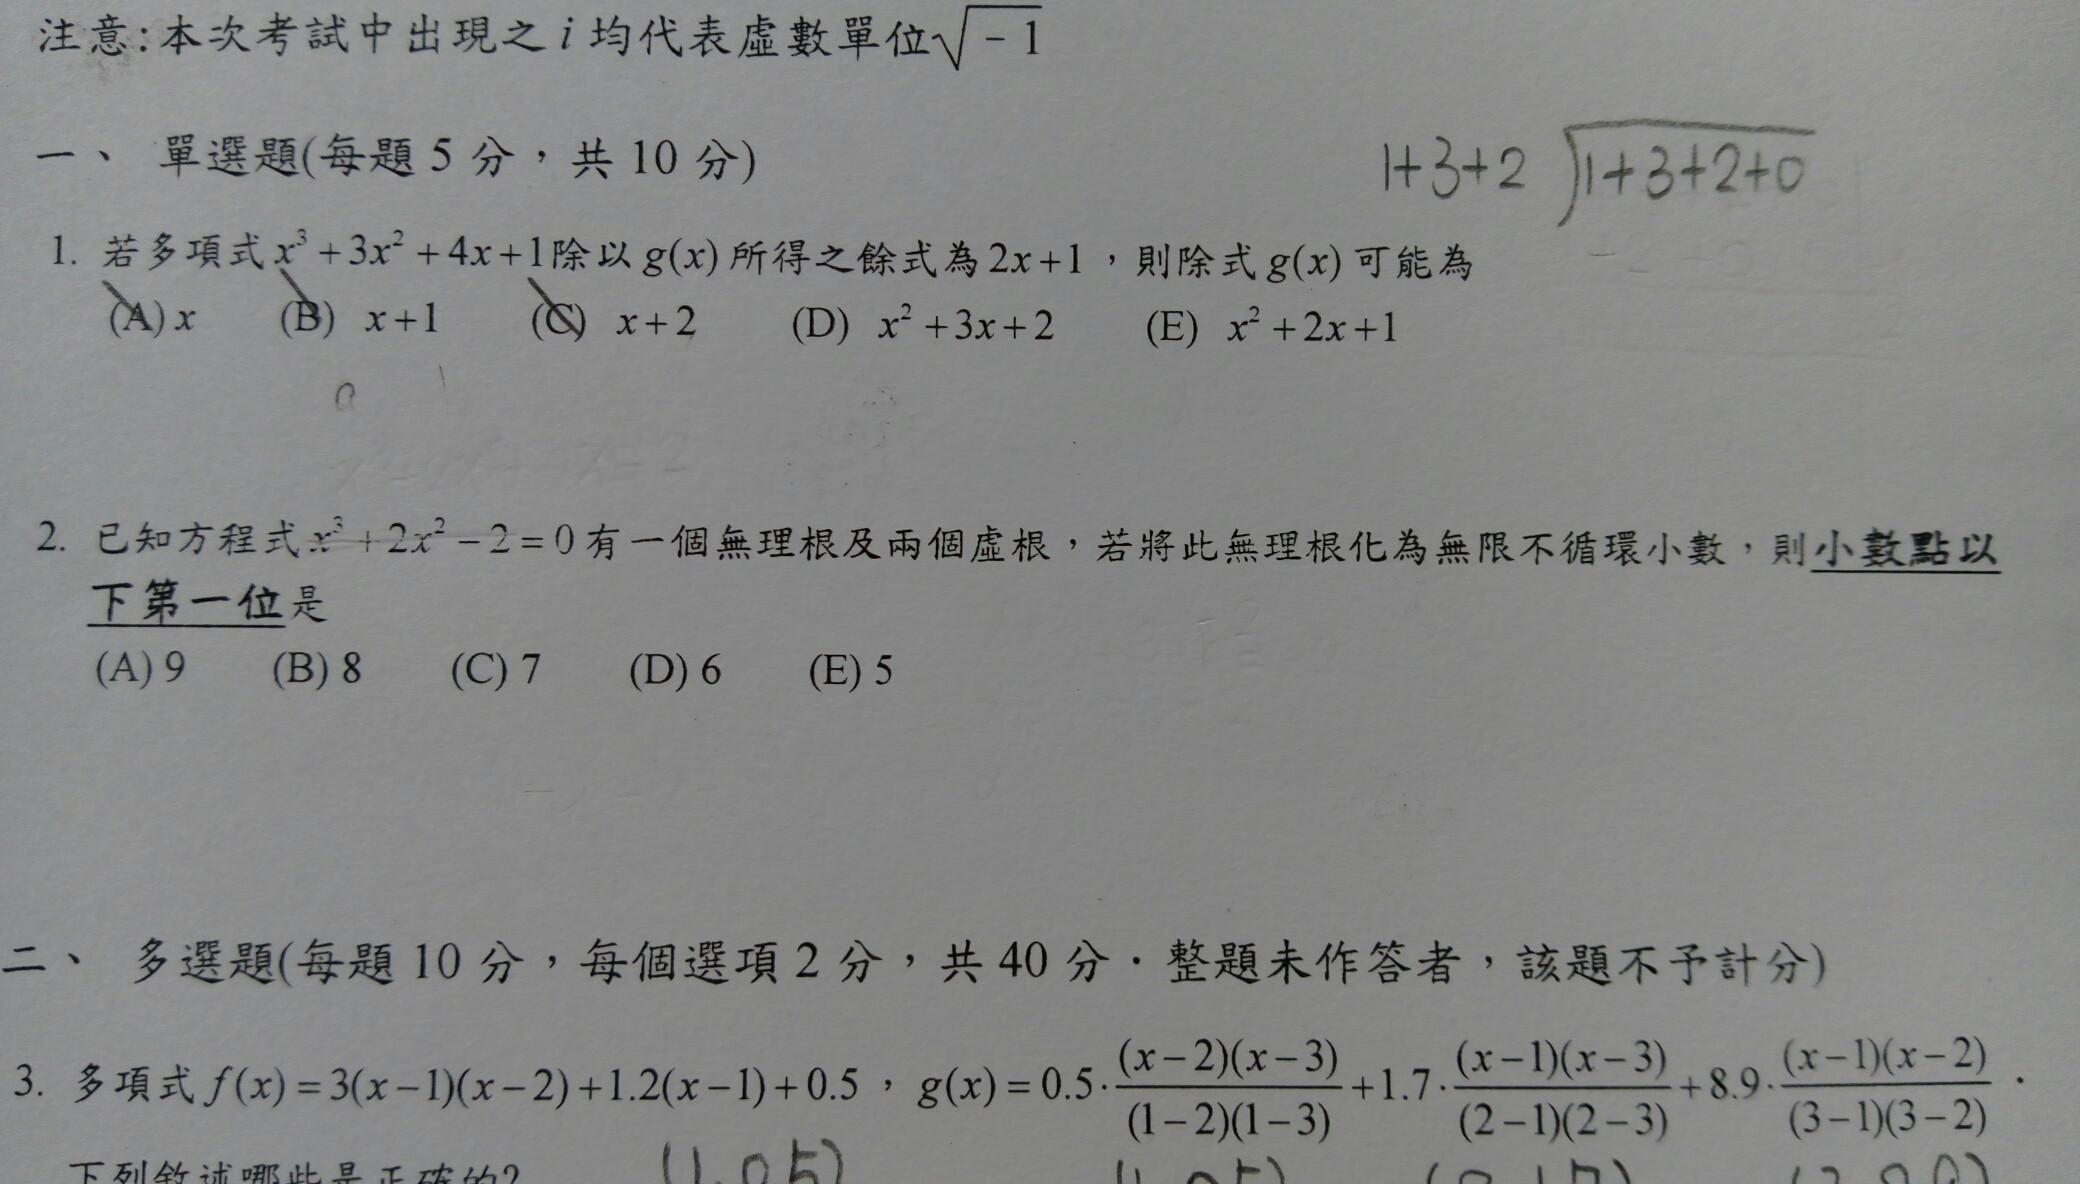 注意:本次考試中出現之 i 均代表虛數單位√-1
一、 單選題(每題 5 分，共 10 分)
1+3+2 ) 1+3+2+0
1. 若多項式 x³+3x²+4x+1除以 g(x) 所得之餘式為 2x+1，則除式 g(x) 可能為
(A) x (B) x+1 (C) x+2 (D) x²+3x+2 (E) x²+2x+1
2. 已知方程式 x³+2x²-2=0 有一個無理根及兩個虛根，若將此無理根化為無限不循環小數，則小數點以
下第一位是
(A) 9 (B) 8 (C) 7 (D) 6 (E) 5
二、 多選題(每題 10 分，每個選項 2 分，共 40 分．整題未作答者，該題不予計分)
3. 多項式 f(x)=3(x-1)(x-2)+1.2(x-1)+0.5，g(x)=0.5·(x-2)(x-3)/(1-2)(1-3)+1.7·(x-1)(x-3)/(2-1)(2-3)+8.9·(x-1)(x-2)/(3-1)(3-2)．
下列敘述哪些是正確的?